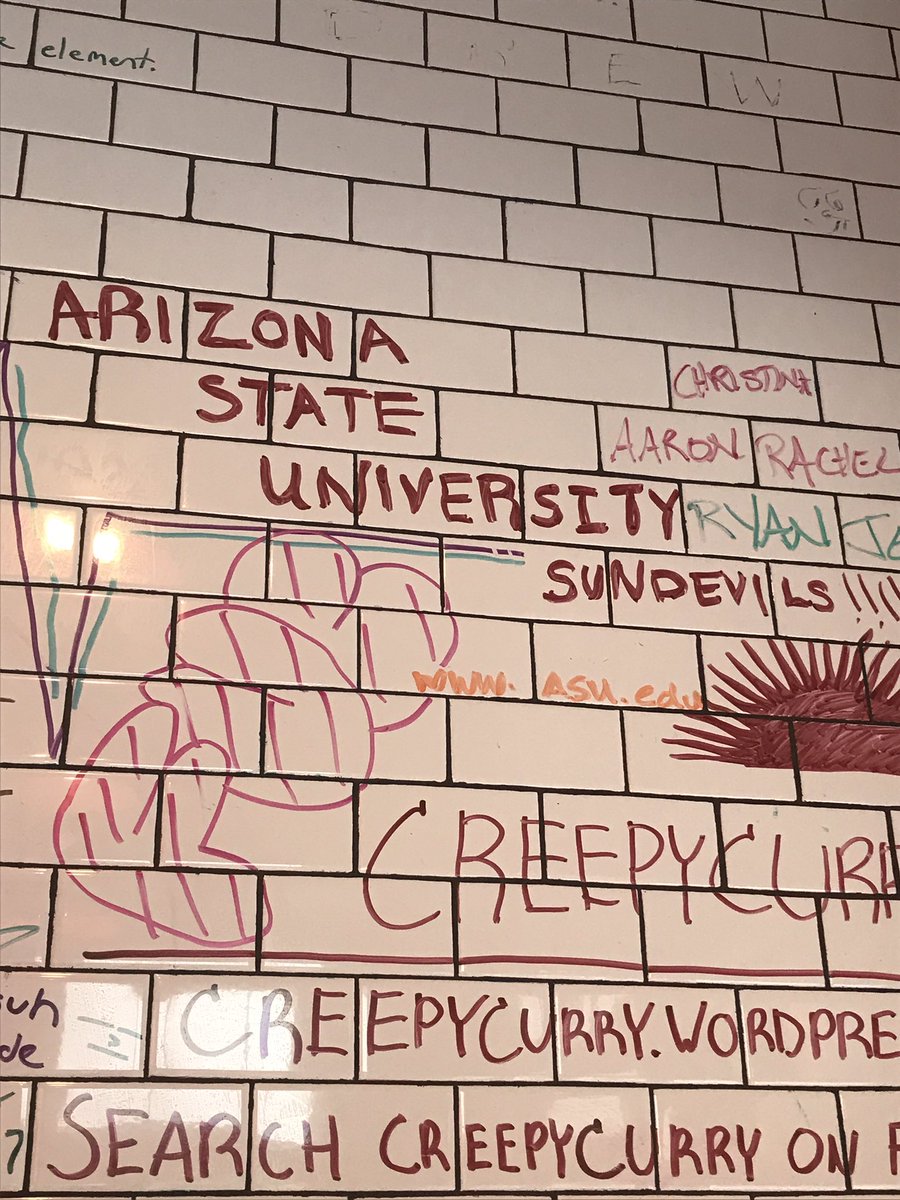 element.
E W
ARIZONA
STATE
UNIVERSITY
SUNDEVILS!!!
CHRISTINA
AARON RACHEL
RYAN
www.asu.edu
CREEPYCURR
CREEPYCURRY.WORDPRE
de
SEARCH CREEPYCURRY ON
7